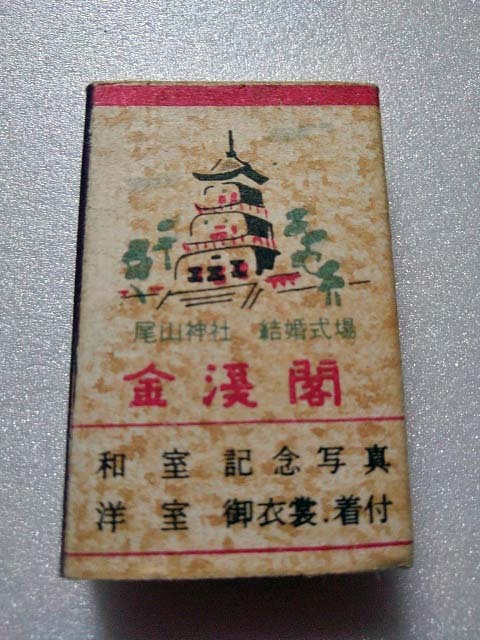 尾山神社 結婚式場
金渓閣
和室 記念写真
洋室 御衣裳.着付